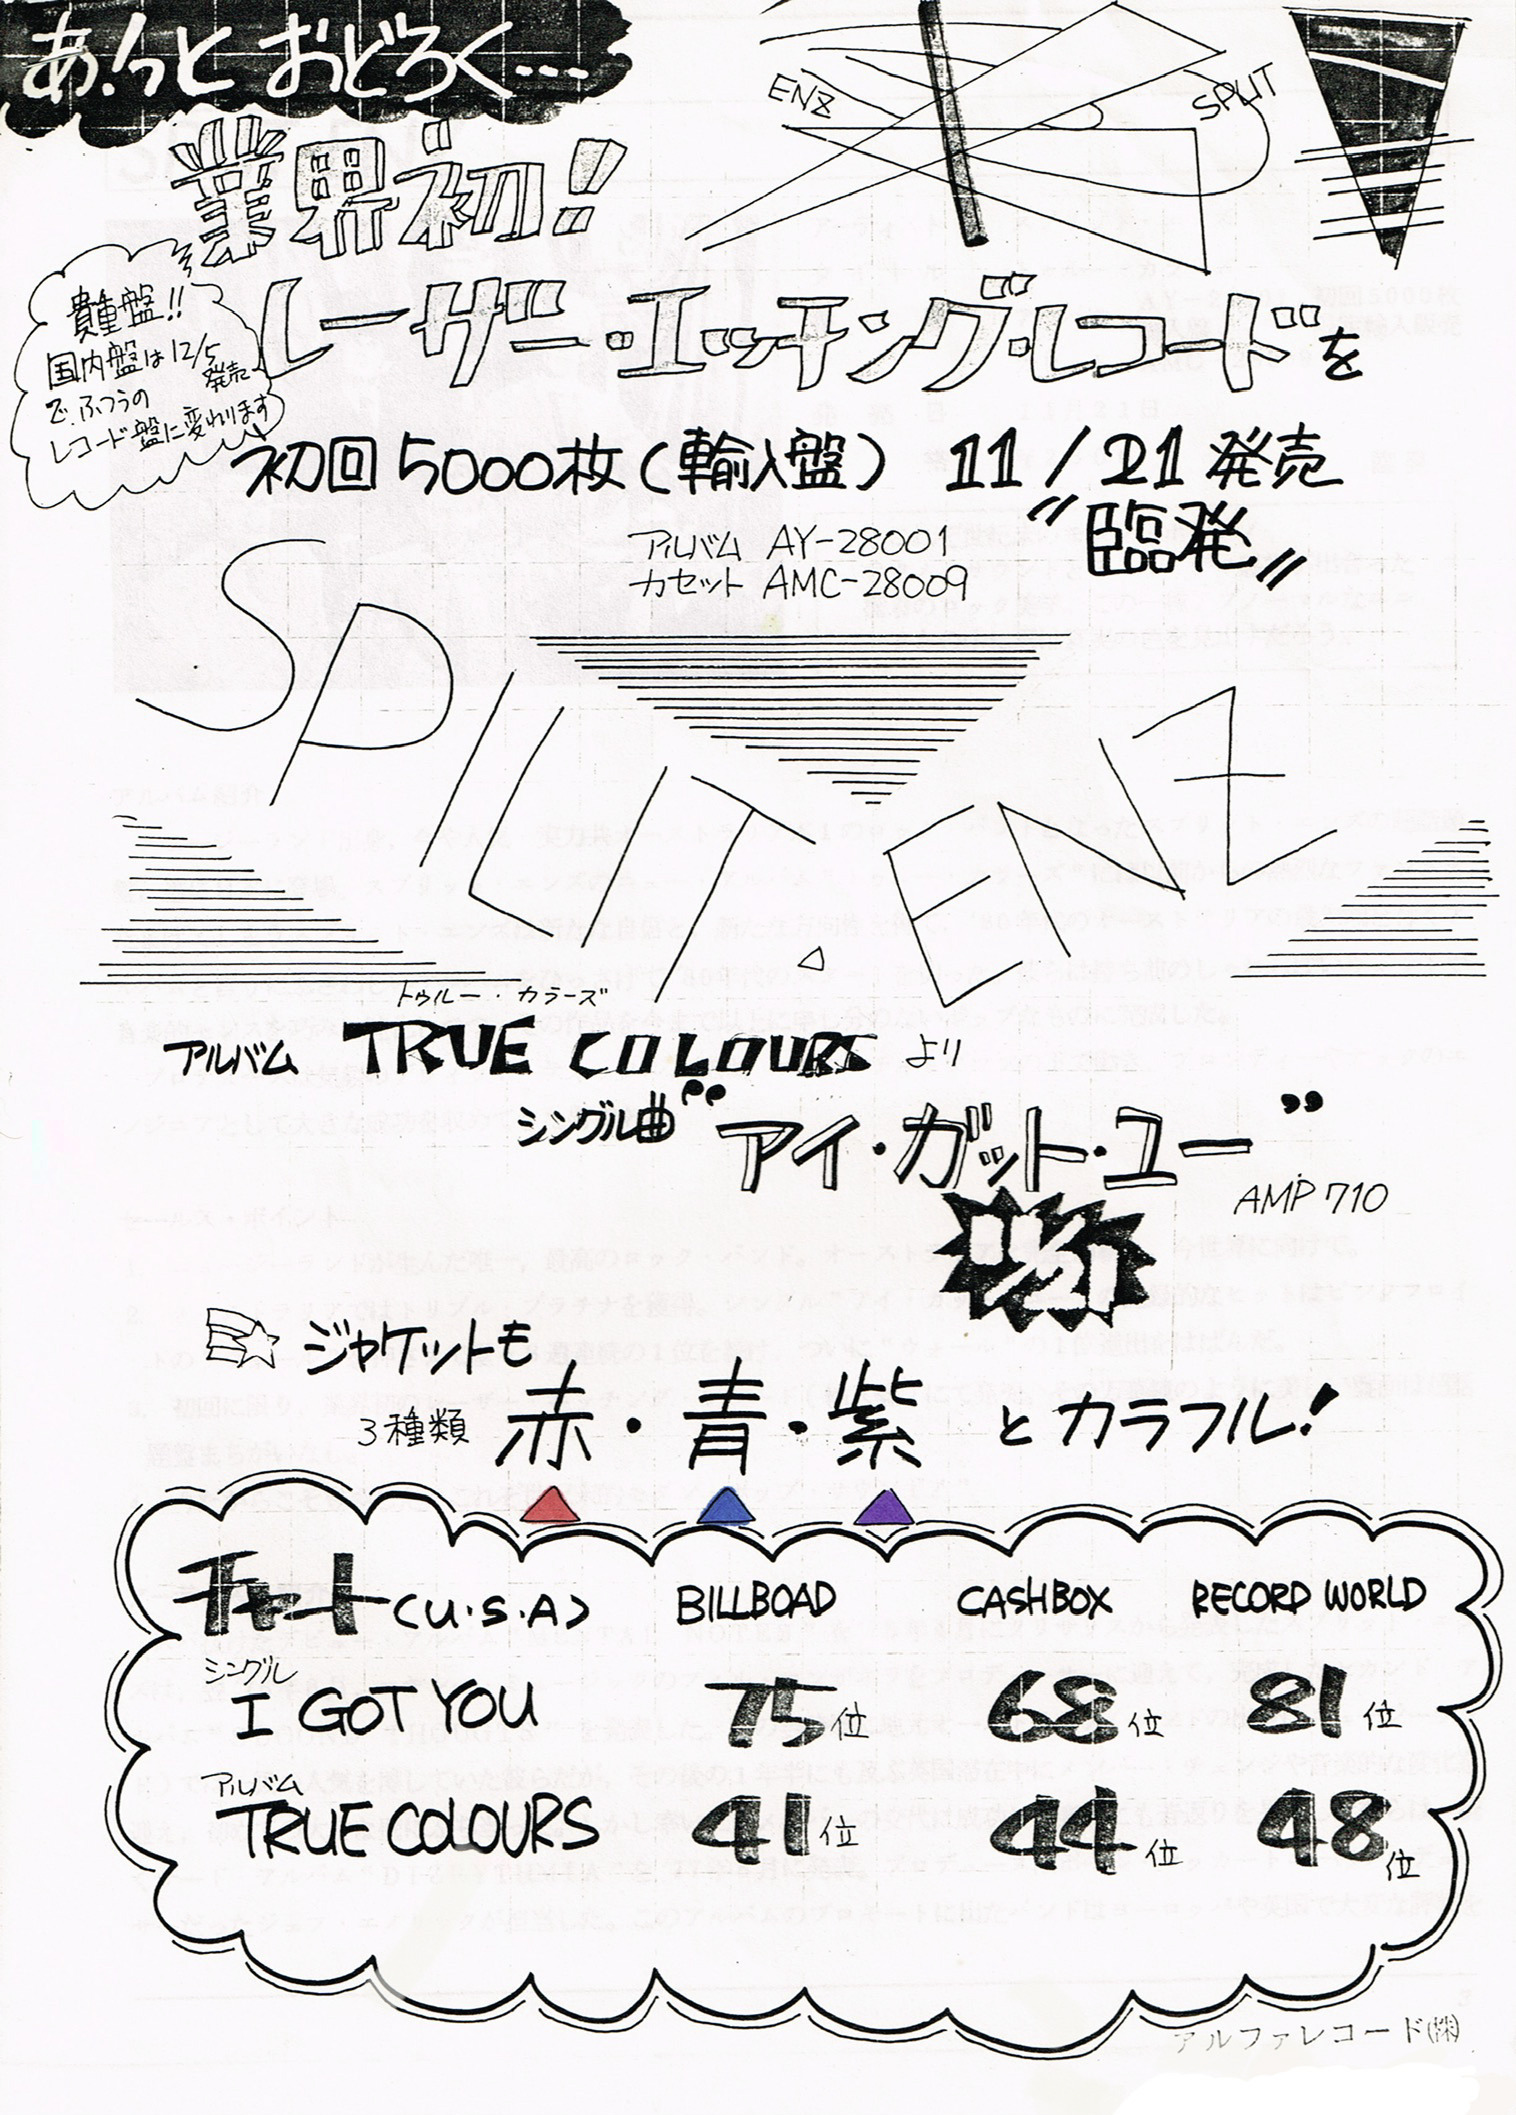 あ!っと おどろく・・・・
ENZ
SPLIT
業界初!
レーザー・エッチング・レコードを
貴重盤!!
国内盤は12/5
発売
で、ふつうの
レコード盤に変わります
初回5000枚(輸入盤) 11/21発売
〝臨発〟
アルバム AY-28001
カセット AMC-28009
SPLIT. ENZ
トゥルー・カラーズ
アルバム TRUE COLOURS より
シングル曲 “アイ・ガット・ユー”
AMP 710
ジャケットも
3種類 赤・青・紫 とカラフル!
チャート(U・S・A) BILLBOAD CASHBOX RECORD WORLD
シングル
I GOT YOU 75位 68位 81位
アルバム
TRUE COLOURS 41位 44位 48位
アルファレコード(株)